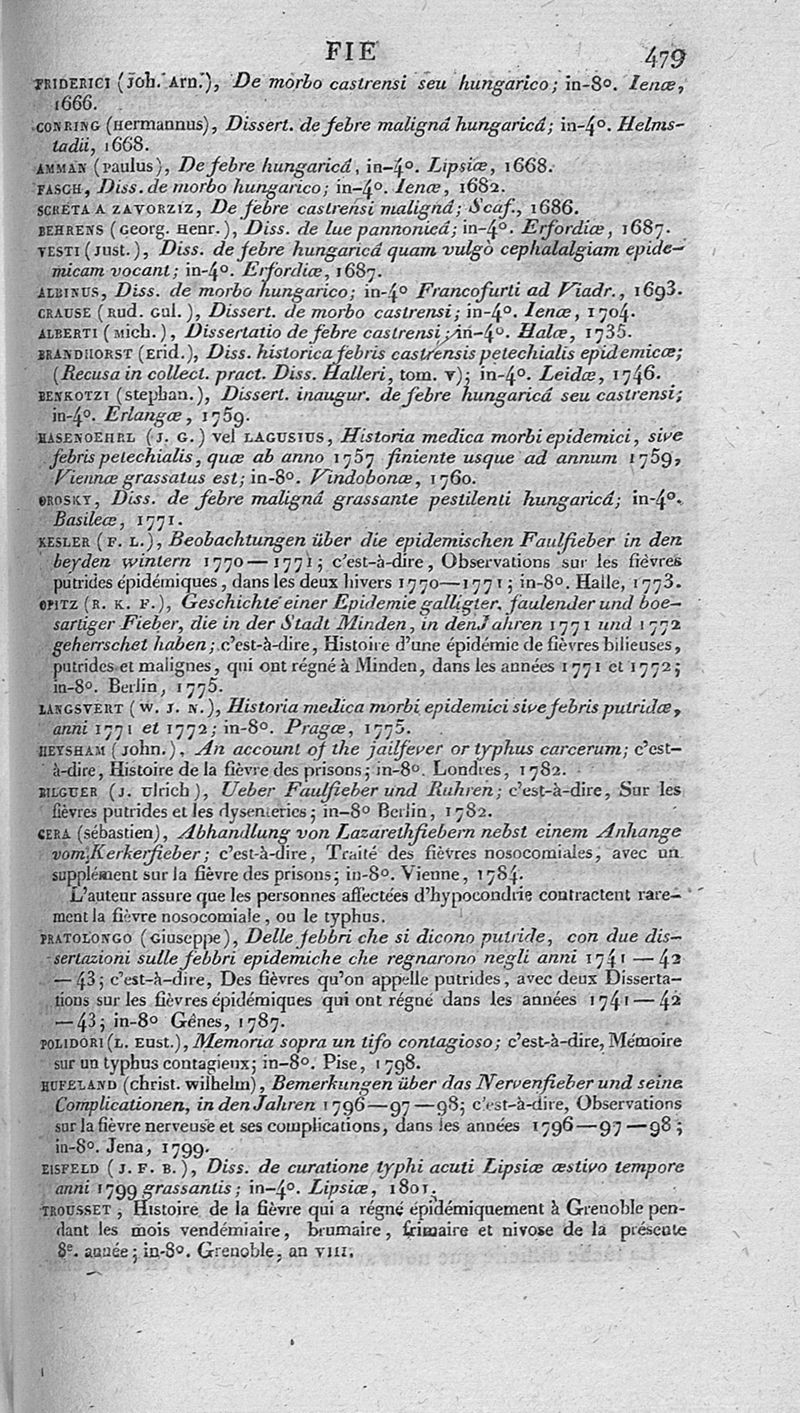 FIE 479
FRIDERICI (Joh. Arn.), De morbo castrensi seu hungarico; in-8o. Ienæ,
1666.
CONRING (Hermannus), Dissert. de febre malignâ hungaricâ; in-4o. Helms-
tadii, 1668.
AMMAN (Paulus), De febre hungaricâ, in-4o. Lipsiæ, 1668.
FASCH, Diss. de morbo hungarico; in-4o. Ienæ, 1682.
SCRETA A ZAVORZIZ, De febre castrensi malignâ; Scaf., 1686.
BEHRENS (Georg. Henr.), Diss. de lue pannonicâ; in-4o. Erfordiæ, 1687.
VESTI (Just.), Diss. de febre hungaricâ quam vulgò cephalalgiam epide-
micam vocant; in-4o. Erfordiæ, 1687.
ALBINUS, Diss. de morbo hungarico; in-4o Francofurti ad Viadr., 1693.
CRAUSE (Rud. Gul.), Dissert. de morbo castrensi; in-4o. Ienæ, 1704.
ALBERTI (Mich.), Dissertatio de febre castrensi; in-4o. Halæ, 1735.
BRANDHORST (Erid.), Diss. historica febris castrensis petechialis epidemicæ;
(Recusa in collect. pract. Diss. Halleri, tom. V); in-4o. Leidæ, 1746.
BENKOTZI (Stephan.), Dissert. inaugur. de febre hungaricâ seu castrensi;
in-4o. Erlangæ, 1759.
HASENOEHRL (J. G.) vel LAGUSIUS, Historia medica morbi epidemici, sive
febris petechialis, quæ ab anno 1757 finiente usque ad annum 1759,
Viennæ grassatus est; in-8o. Vindobonæ, 1760.
OROSKY, Diss. de febre malignâ grassante pestilenti hungaricâ; in-4o.
Basileæ, 1771.
KESLER (F. L.), Beobachtungen über die epidemischen Faulfieber in den
beyden wintern 1770—1771; c'est-à-dire, Observations sur les fièvres
putrides épidémiques, dans les deux hivers 1770—1771; in-8o. Halle, 1773.
OPITZ (R. K. F.), Geschichte einer Epidemie galligter, faulender und boe-
sartiger Fieber, die in der Stadt Minden, in den Jahren 1771 und 1772
geherrschet haben; c'est-à-dire, Histoire d'une épidémie de fièvres bilieuses,
putrides et malignes, qui ont régné à Minden, dans les années 1771 et 1772;
in-8o. Berlin, 1775.
LANGSVERT (W. J. N.), Historia medica morbi epidemici sive febris putridæ,
anni 1771 et 1772; in-8o. Pragæ, 1775.
HEYSHAM (John.), An account of the jailfever or typhus carcerum; c'est-
à-dire, Histoire de la fièvre des prisons; in-8o. Londres, 1782.
BILGUER (J. Ulrich), Ueber Faulfieber und Ruhren; c'est-à-dire, Sur les
fièvres putrides et les dysenteries; in-8o Berlin, 1782.
CERA (Sébastien), Abhandlung von Lazarethfiebern nebst einem Anhange
vom Kerkerfieber; c'est-à-dire, Traité des fièvres nosocomiales, avec un
supplément sur la fièvre des prisons; in-8o. Vienne, 1784.
L'auteur assure que les personnes affectées d'hypocondrie contractent rare-
ment la fièvre nosocomiale, ou le typhus.
PRATOLONGO (Giuseppe), Delle febbri che si dicono putride, con due dis-
sertazioni sulle febbri epidemiche che regnarono negli anni 1741 — 42
— 43; c'est-à-dire, Des fièvres qu'on appelle putrides, avec deux Disserta-
tions sur les fièvres épidémiques qui ont régné dans les années 1741 — 42
— 43; in-8o Gênes, 1787.
POLIDORI (L. Eust.), Memoria sopra un tifo contagioso; c'est-à-dire, Mémoire
sur un typhus contagieux; in-8o. Pise, 1798.
HUFELAND (Christ. Wilhelm), Bemerkungen über das Nervenfieber und seine
Complicationen, in den Jahren 1796—97—98; c'est-à-dire, Observations
sur la fièvre nerveuse et ses complications, dans les années 1796—97—98;
in-8o. Jena, 1799.
EISFELD (J. F. B.), Diss. de curatione typhi acuti Lipsiæ æstivo tempore
anni 1799 grassantis; in-4o. Lipsiæ, 1801.
TROUSSET, Histoire de la fièvre qui a régné épidémiquement à Grenoble pen-
dant les mois vendémiaire, brumaire, frimaire et nivose de la présente
8e. année; in-8o. Grenoble, an VIII.